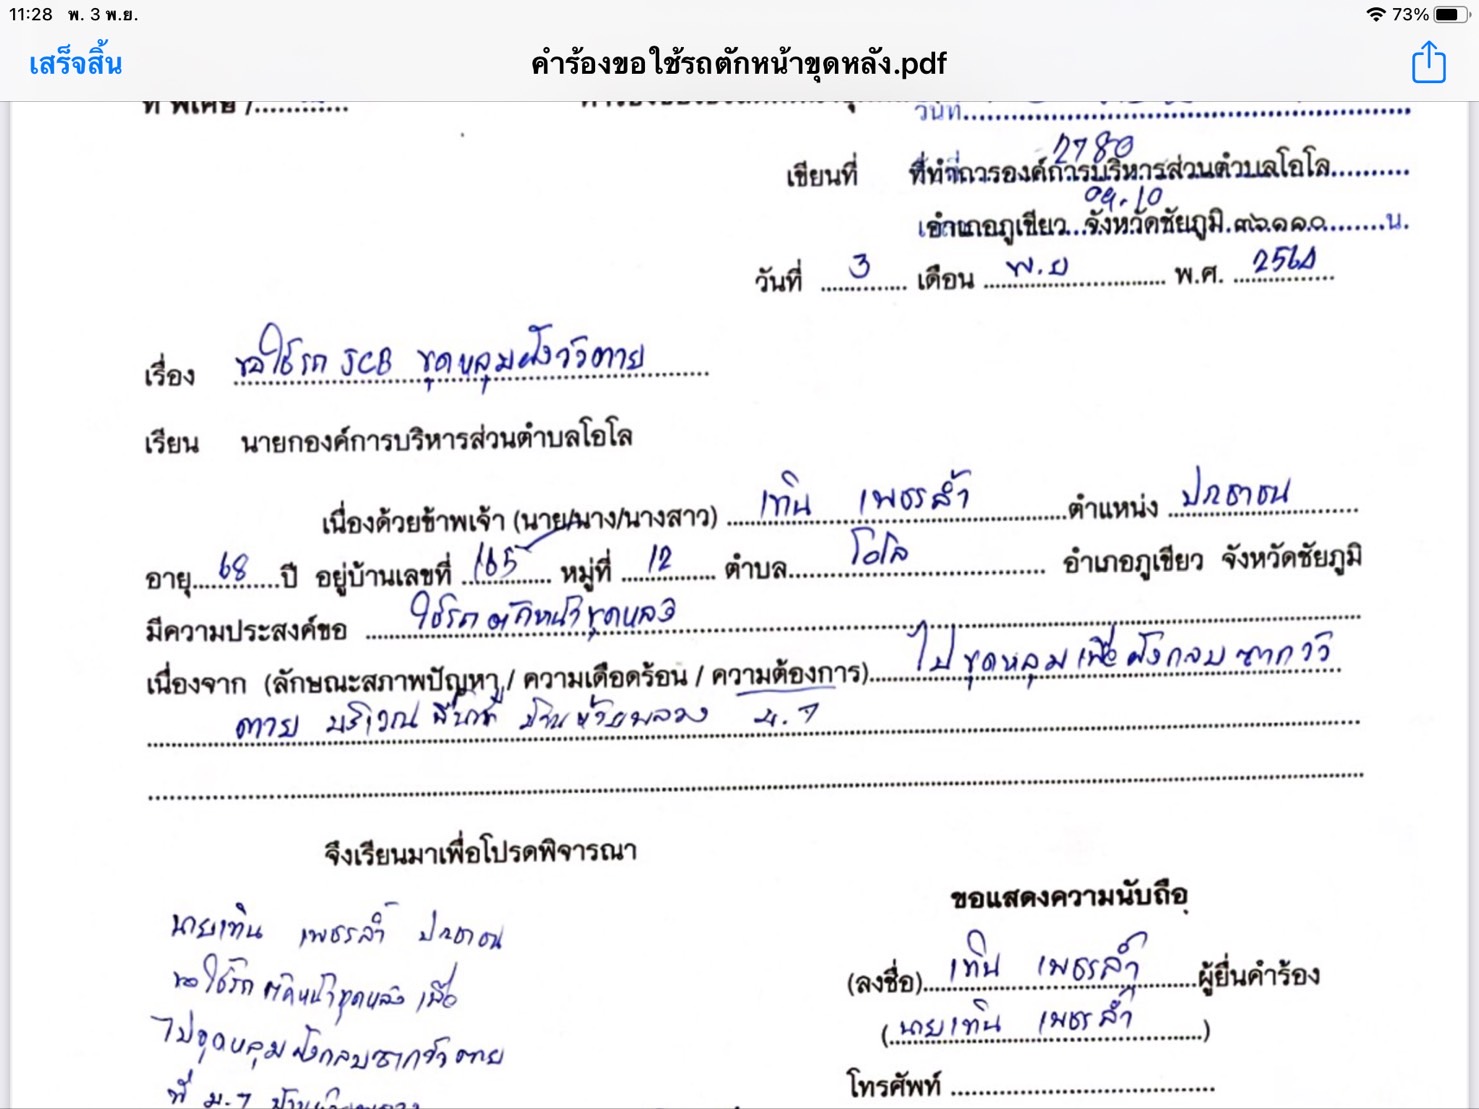 11:28 พ. 3 พ.ย. 73%
เสร็จสิ้น คำร้องขอใช้รถตักหน้าขุดหลัง.pdf
ที่ พิเศษ /............
วันที่
2780
เขียนที่ ที่ทำการองค์การบริหารส่วนตำบลโอโล
09.10
อำเภอภูเขียว จังหวัดชัยภูมิ ๓๖๑๑๐ น.
วันที่ 3 เดือน พ.ย พ.ศ. 2564
เรื่อง ขอใช้รถ JCB ขุดหลุมฝังวัวตาย
เรียน นายกองค์การบริหารส่วนตำบลโอโล
เนื่องด้วยข้าพเจ้า (นาย/นาง/นางสาว) เทิน เพชรล้ำ ตำแหน่ง ประชาชน
อายุ 68 ปี อยู่บ้านเลขที่ 165 หมู่ที่ 12 ตำบล โอโล อำเภอภูเขียว จังหวัดชัยภูมิ
มีความประสงค์ขอ ใช้รถตักหน้าขุดหลัง
เนื่องจาก (ลักษณะสภาพปัญหา / ความเดือดร้อน / ความต้องการ) ไปขุดหลุมเพื่อฝังกลบซากวัว
ตาย บริเวณ บ้านห้วยพลวง ม.7
จึงเรียนมาเพื่อโปรดพิจารณา
ขอแสดงความนับถือ
นายเทิน เพชรล้ำ ประชาชน
ขอใช้รถตักหน้าขุดหลัง เพื่อ
ไปขุดหลุมฝังกลบซากวัวตาย
ที่ ม.7 บ้านห้วยพลวง
(ลงชื่อ) เทิน เพชรล้ำ ผู้ยื่นคำร้อง
(นายเทิน เพชรล้ำ)
โทรศัพท์